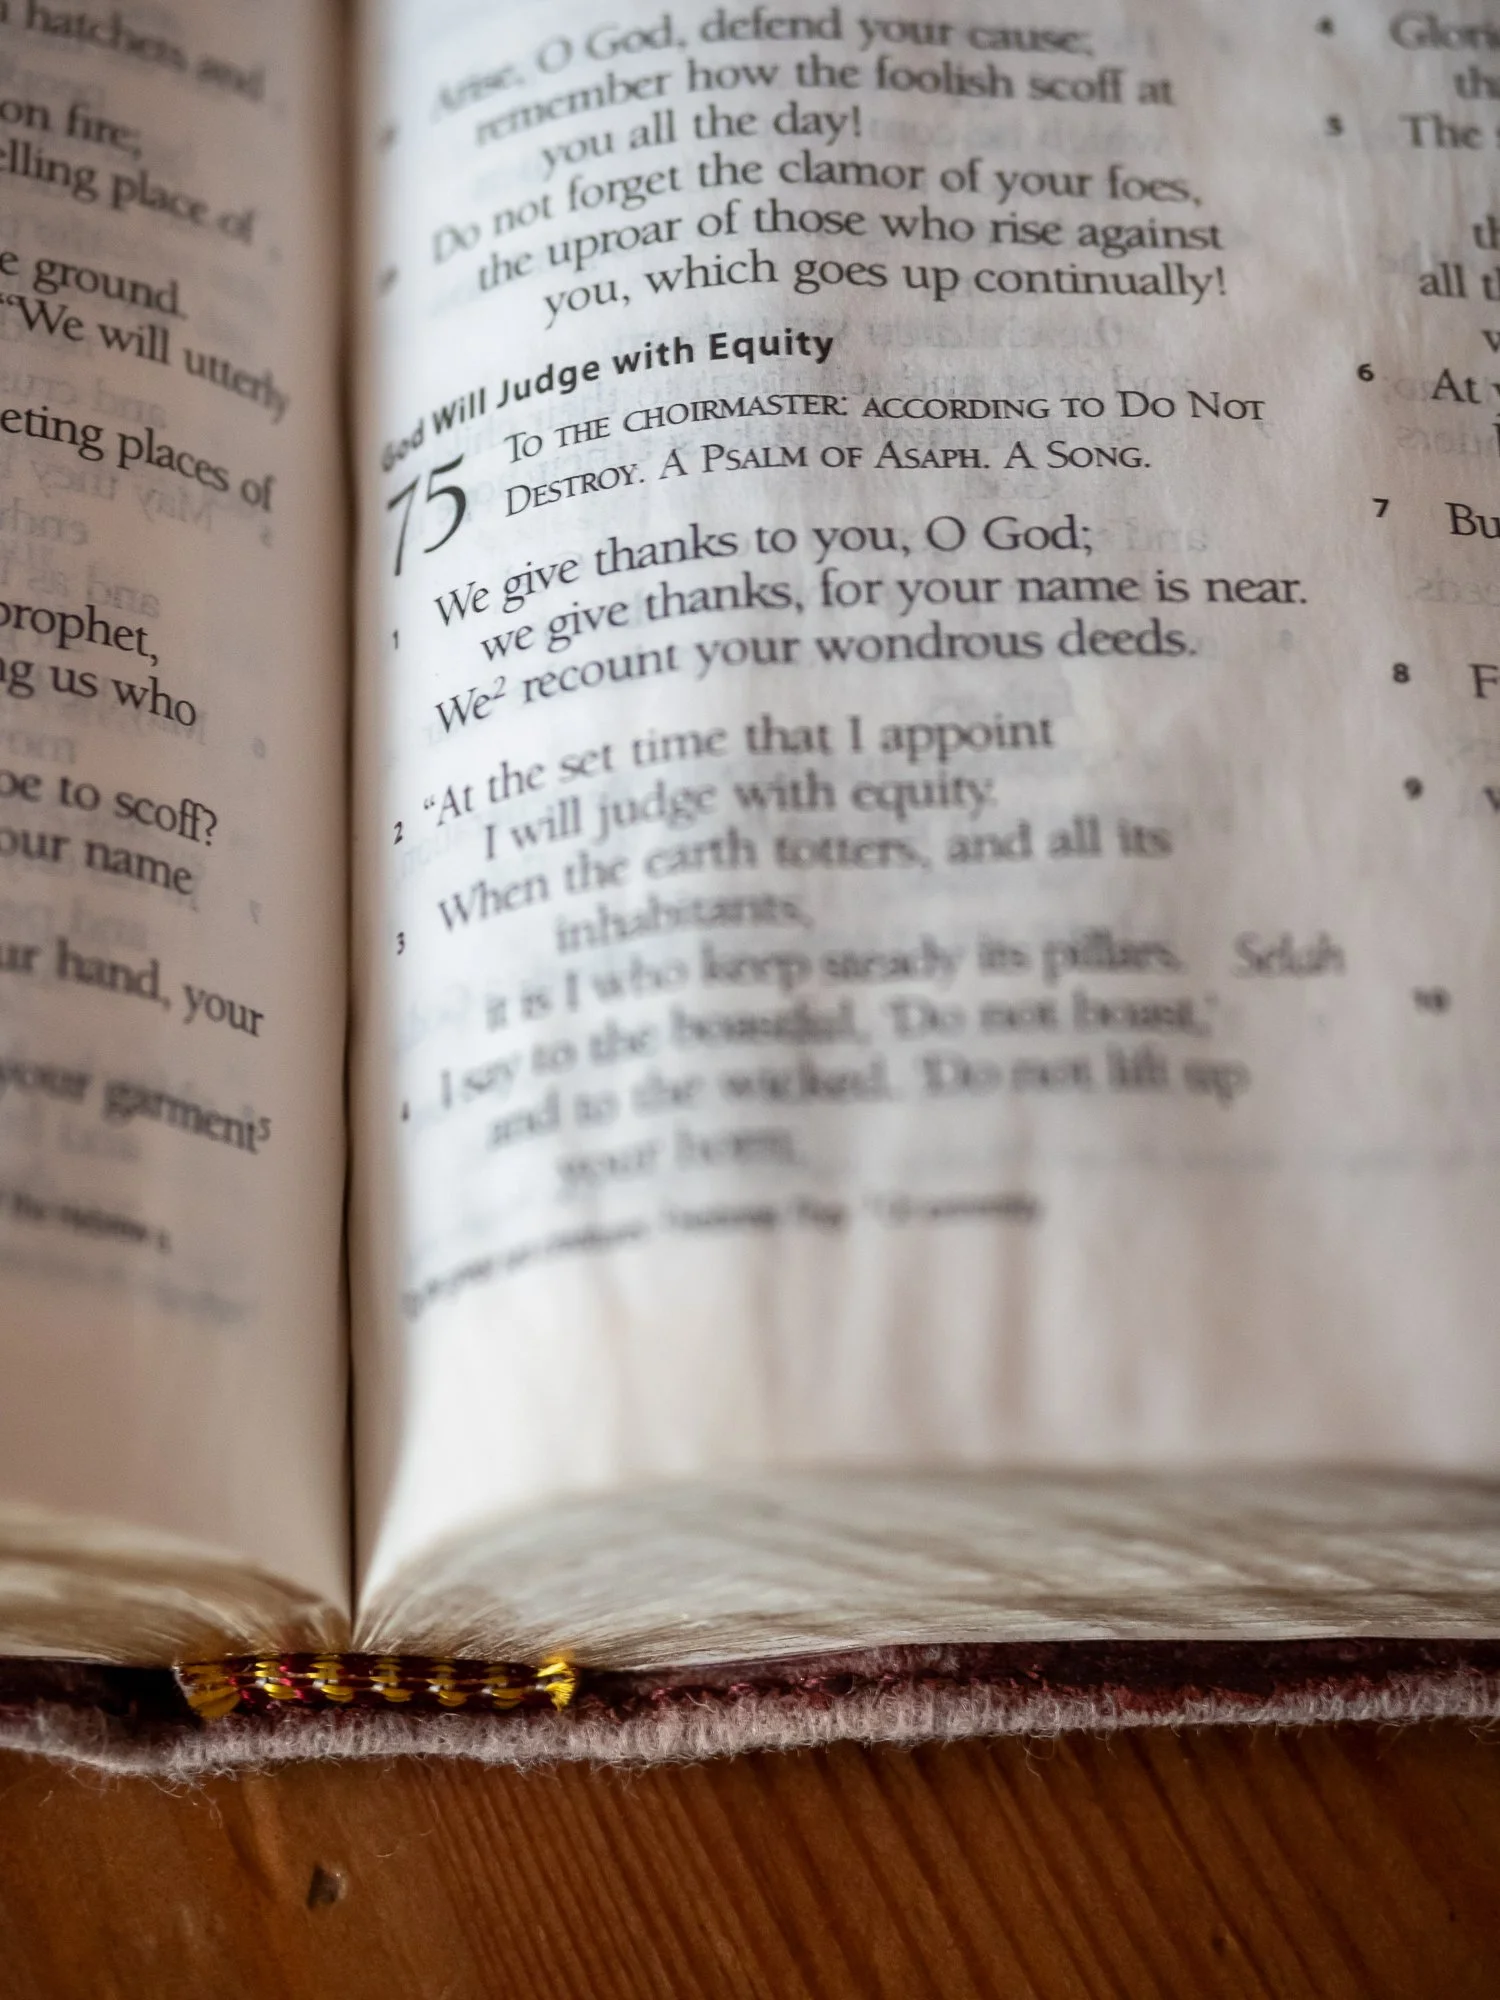 hatchets and
on fire;
elling place of
e ground.
"We will utterly
eting places of
prophet,
ng us who
oe to scoff?
our name
ur hand, your
your garment⁵
Arise, O God, defend your cause;
remember how the foolish scoff at
you all the day!
Do not forget the clamor of your foes,
the uproar of those who rise against
you, which goes up continually!
God Will Judge with Equity
75 TO THE CHOIRMASTER: ACCORDING TO DO NOT
DESTROY. A PSALM OF ASAPH. A SONG.
1 We give thanks to you, O God;
we give thanks, for your name is near.
We² recount your wondrous deeds.
2 "At the set time that I appoint
I will judge with equity.
3 When the earth totters, and all its
inhabitants,
it is I who keep steady its pillars. Selah
4 I say to the boastful, 'Do not boast,'
and to the wicked, 'Do not lift up
your horn;
4 Glori
tha
5 The
th
all th
6 At
7 Bu
8 F
9
10